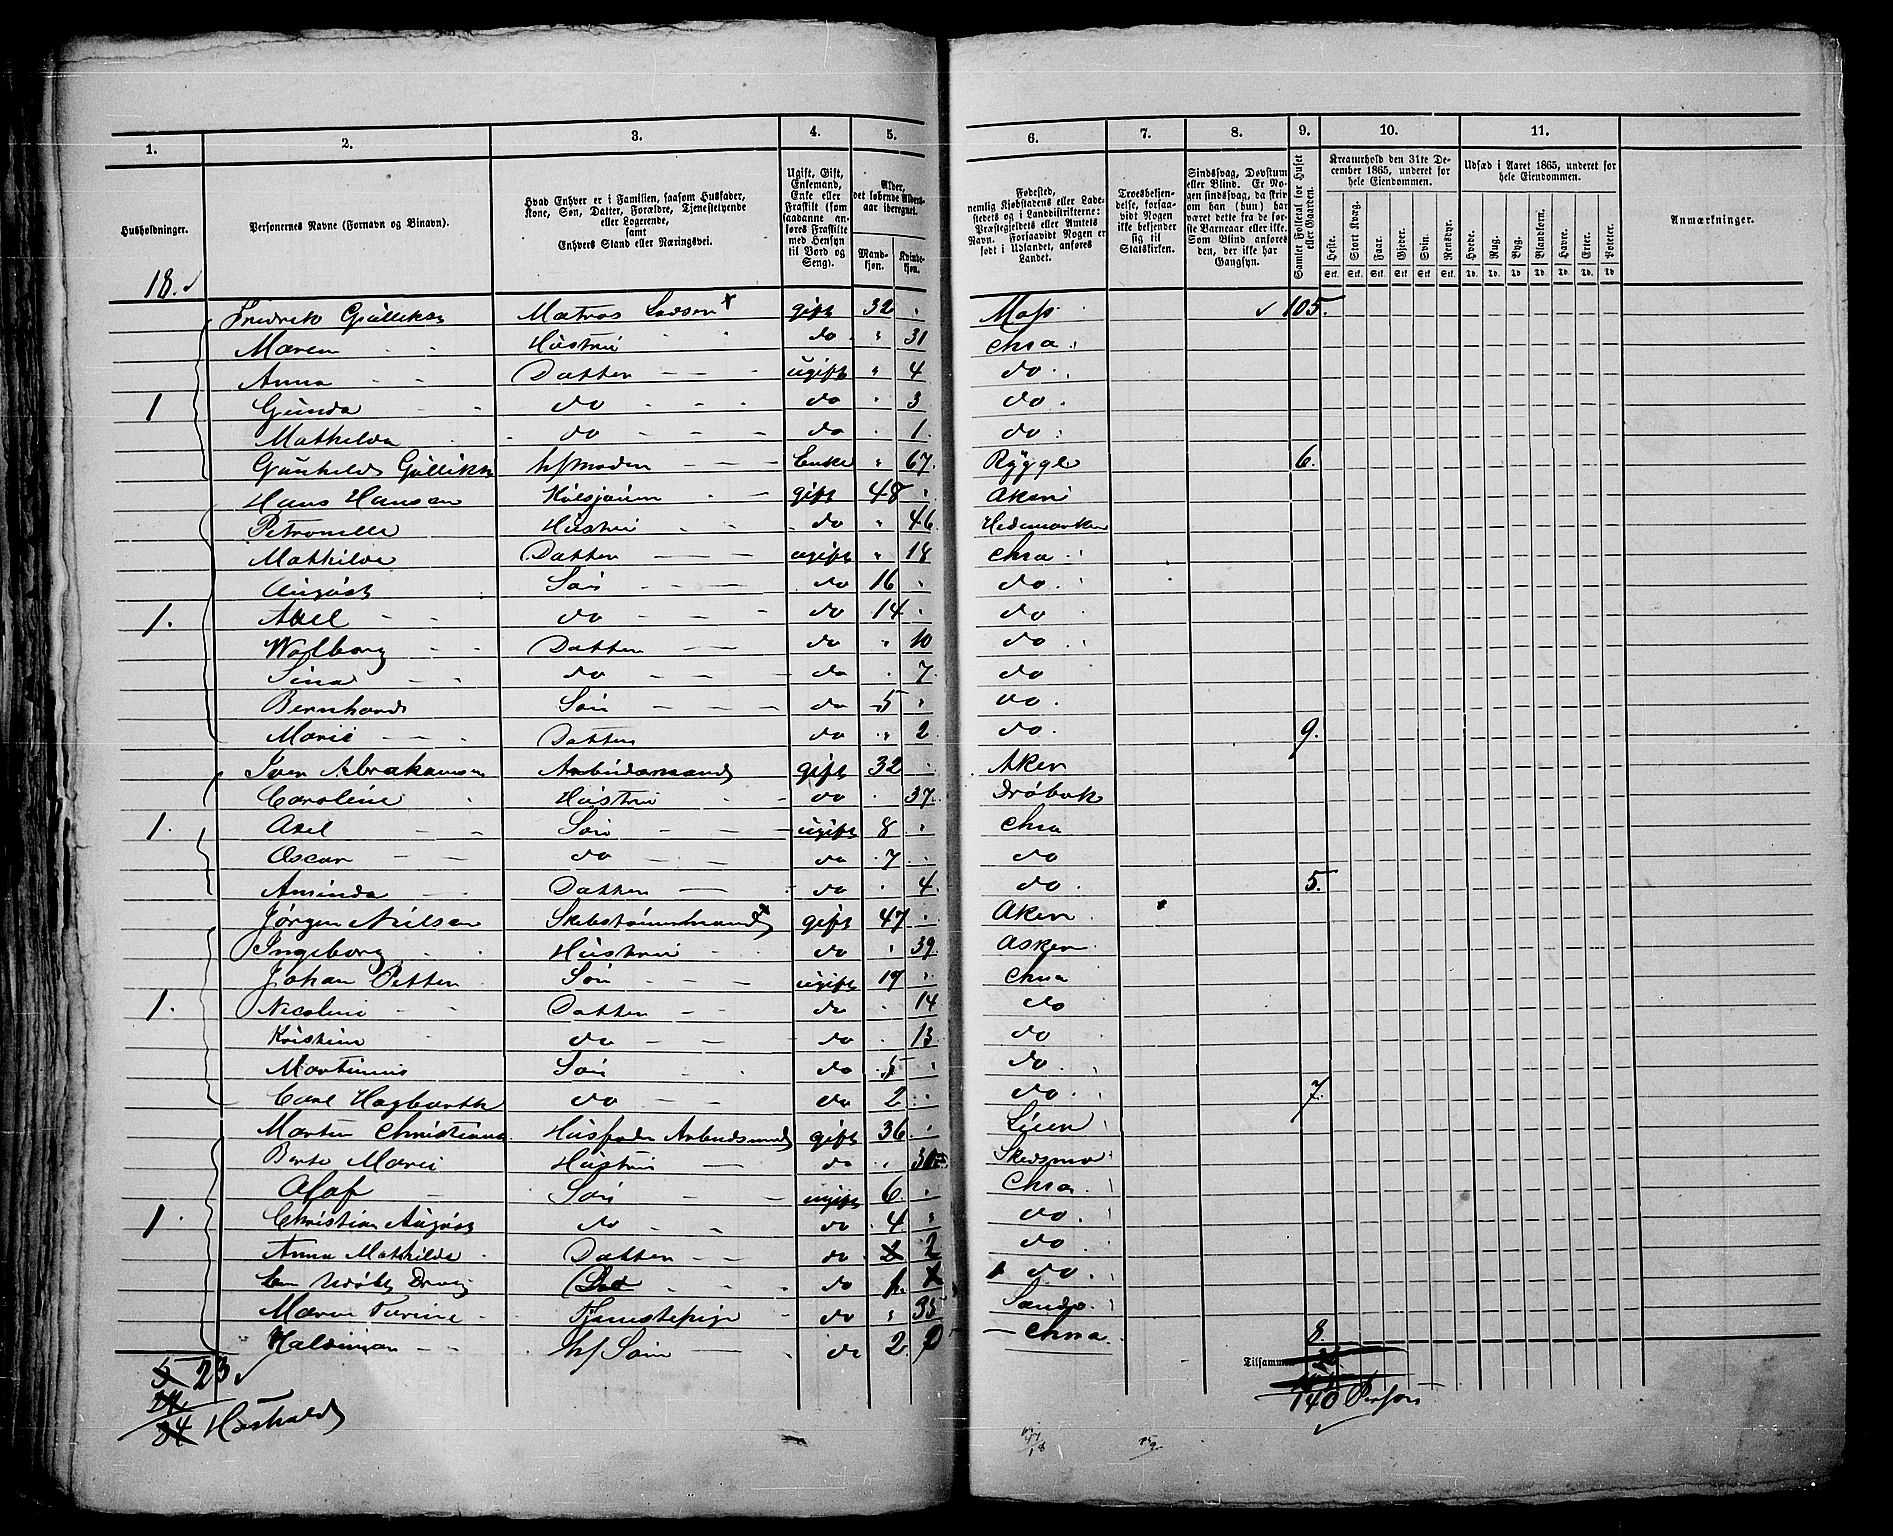 1. 2. 3. 4. 5. 6. 7. 8. 9. 10. 11.
Husholdninger.
Personernes Navne (Fornavn og Binavn).
Hvad Enhver er i Familien, saasom Husfader, Kone, Søn, Datter, Forældre, Tjenestetyende eller Logerende, samt Enhvers Stand eller Næringsvei.
Ugift, Gift, Enkemand, Enke eller Fraskilt (som saadanne anføres Fraskilte med Hensyn til Bord og Seng).
Alder, det løbende Alders-aar iberegnet.
Mandkjøn. Kvindekjøn.
Fødested, nemlig Kjøbstadens eller Ladestedets og i Landdistrikterne: Præstegjeldets eller Amtets Navn. Forsaavidt Nogen er født i Udlandet, anføres Landet.
Troesbekjendelse, forsaavidt Nogen ikke bekjender sig til Statskirken.
Sindssvag, Døvstum eller Blind. Er Nogen sindssvag, da skrives om han (hun) har været dette fra de første Barneaar eller ikke. Som Blind anføres den, der ikke har Gangsyn.
Samlet Folketal for Huset eller Gaarden.
Kreaturhold den 31te December 1865, underet for hele Eiendommen.
Heste. Stort Kvæg. Faar. Gjeder. Svin. Rensdyr.
Stk. Stk. Stk. Stk. Stk. Stk.
Udsæd i Aaret 1865, underet for hele Eiendommen.
Hvede. Rug. Byg. Blandkorn. Havre. Erter. Poteter.
Td. Td. Td. Td. Td. Td. Td.
Anmærkninger.
18.
Fredrik Gulliks Matros gift 32 Moss 105.
Maren Hustru do 31 Chra
Anna Datter ugift 4 do
1 Gunda do do 3 do
Mathilde do do 1. do
Gunhild Gulliks h/moder Enke 67. Rygge 6.
Hans Hansen gift 48 Aker
Petronille Hustru do 46 Hedemarken
Mathilde Datter ugift 18 Chra
August Søn do 16 do
1. Axel do do 14 do
Walborg Datter do 10 do
Sina do do 7. do
Bernhard Søn do 5 do
Marie Datter do 2 do 9.
Iver Abrahamsen Arbeidsmand gift 32 Aker
Caroline Hustru do 37. Drøbak
1. Axel Søn ugift 8 Chra
Oscar do do 7 do
Aminda Datter do 4. do 5.
Jørgen Nielsen Skibstømmermand gift 47 Aker
Ingeborg Hustru do 39 Asker
Johan Petter Søn ugift 17 Chra
1. Nicoline Datter do 14 do
Kristine do do 13 do
Martinus Søn do 5 do
Carl Hagbarth do do 2 do 7.
Morten Christians Husfader Arbeidsmand gift 36 Lier
Berte Marie Hustru do Skedsmo
Olaf Søn ugift 6 Chra
1 Christian August do do 4 do
Anna Mathilde Datter do 2 2 do
Søn do 1. do
Maren Tjenestepige do 35
h/ Søn do 2 Chra 8.
5 23
34 Hushold
Tilsammen
140 Person